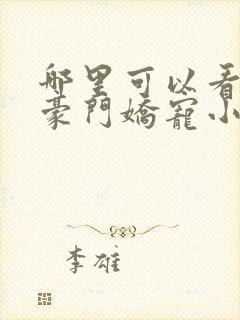 哪里可以看
豪門嬌寵小
李雄